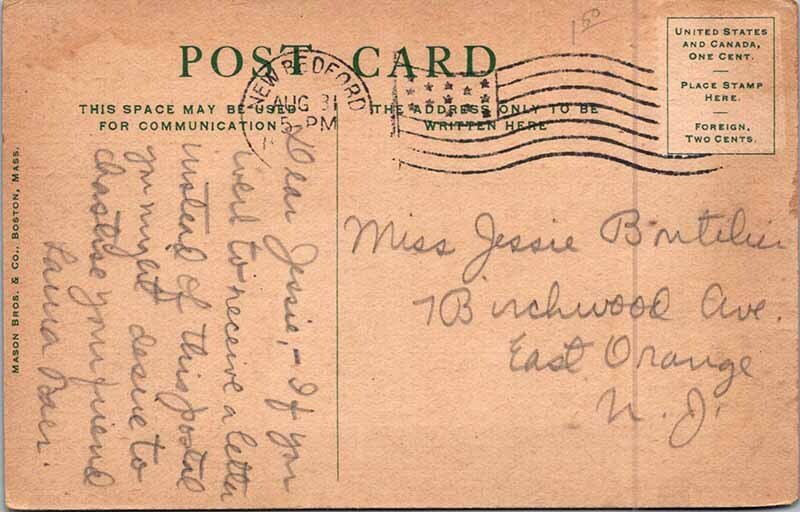 1.50
POST CARD
NEW BEDFORD
AUG 31
5 PM
UNITED STATES
AND CANADA,
ONE CENT.
PLACE STAMP
HERE.
FOREIGN,
TWO CENTS.
THIS SPACE MAY BE USED
FOR COMMUNICATION
THE ADDRESS ONLY TO BE
WRITTEN HERE
Dear Jessie,- If you
were to receive a letter
instead of this postal
you might desire to
chastise your friend
Laura
Miss Jessie
7 Birchwood Ave.
East Orange
N. J.
MASON BROS. & CO., BOSTON, MASS.